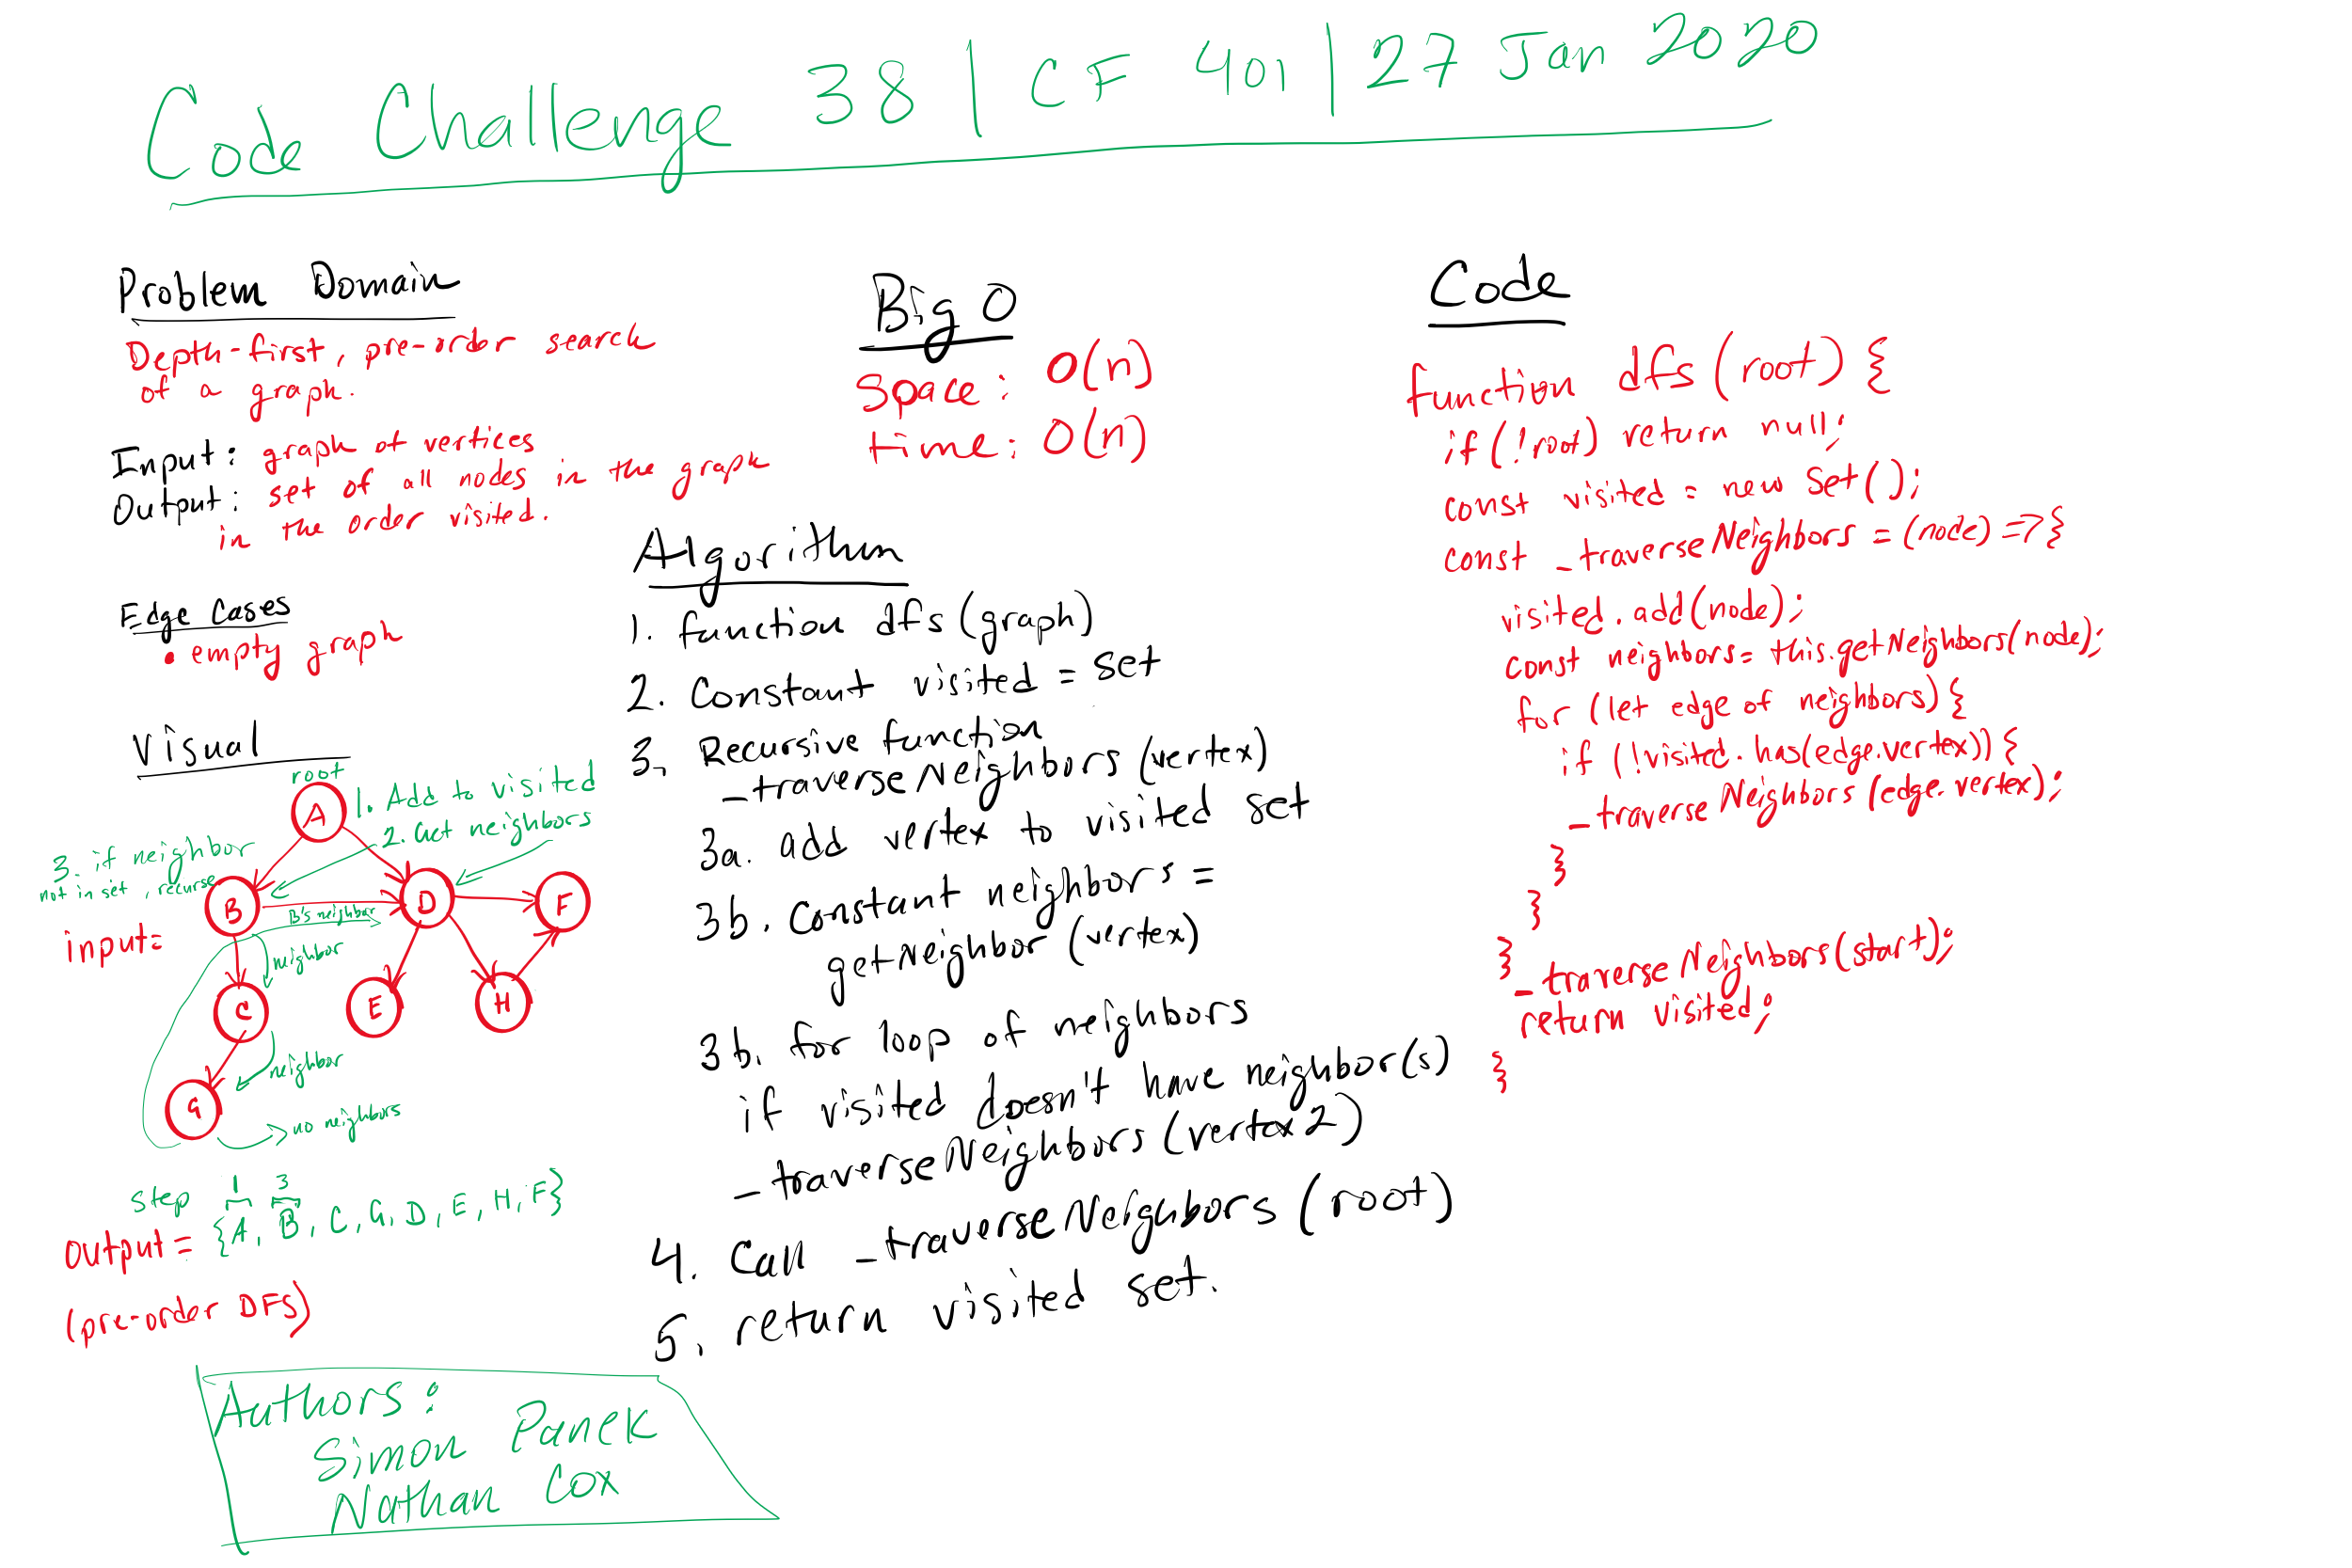 Code Challenge 38 | CF 401 | 27 Jan 2020
Problem Domain
Depth-first, pre-order search
of a graph.
Input: graph of vertices
Output: set of all nodes in the graph
in the order visited.
Edge Cases
• empty graph
Visual
root
A
1. Add to visited
2. Get neighbors
3. if neighbor
not in set, recurse
B
D
F
B's neighbor
input=
neighbor
C
E
H
neighbor
G
no neighbors
step 1 3
output = {A, B, C, G, D, E, H, F}
(pre-order DFS)
Authors:
Simon Panek
Nathan Cox
Big O
Space: O(n)
time: O(n)
Algorithm
1. function dfs (graph)
2. Constant visited = set
3. Recursive function
_traverseNeighbors (vertex)
3a. add vertex to visited set
3b. Constant neighbors =
getNeighbor (vertex)
3b. for loop of neighbors
if visited doesn't have neighbor(s)
_traverseNeighbors (vertex2)
4. Call _traverseNeighbors (root)
5. return visited set.
Code
function dfs (root) {
if (!root) return null;
const visited = new Set();
const _traverseNeighbors = (node) => {
visited.add(node);
const neighbors= this.getNeighbors(node);
for (let edge of neighbors) {
if (!visited.has(edge.vertex)) {
_traverseNeighbors (edge.vertex);
}
}
}
_traverseNeighbors(start);
return visited;
}